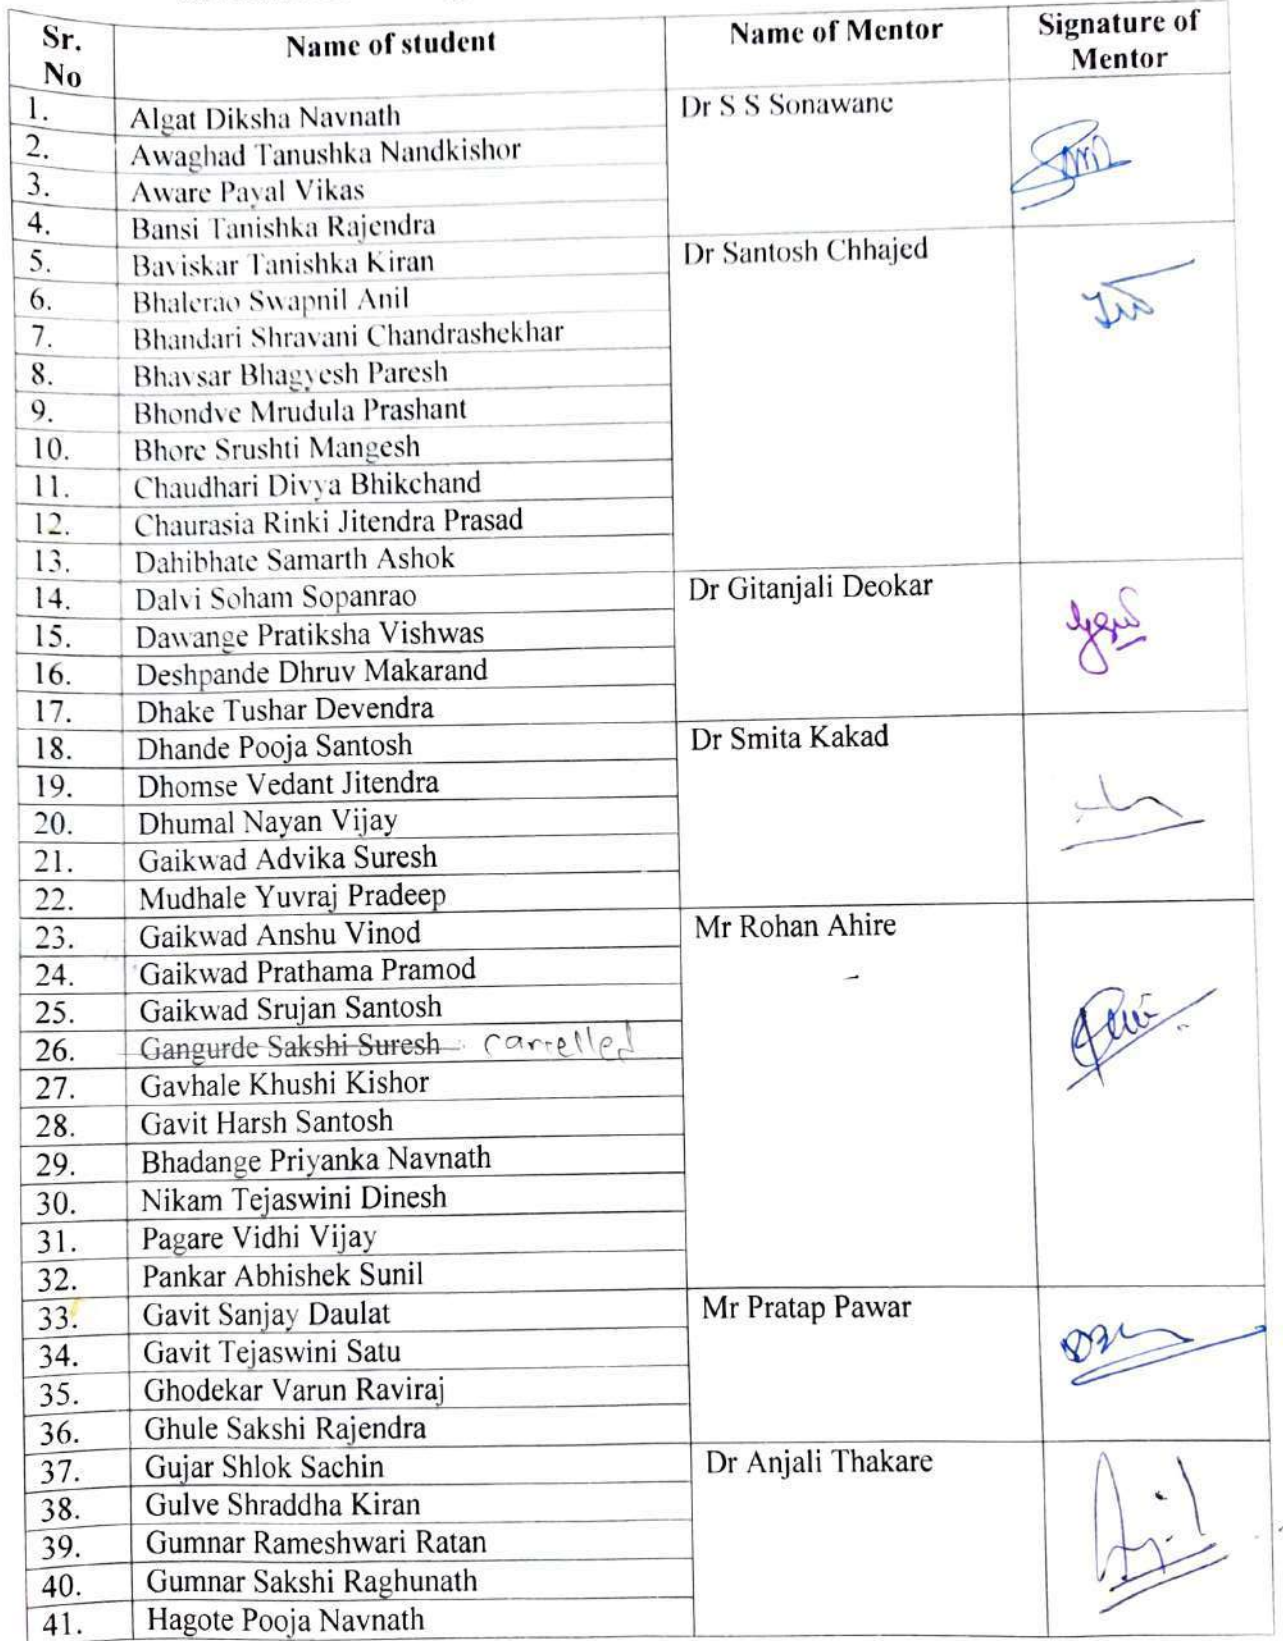 Sr. No Name of student Name of Mentor Signature of Mentor
1. Algat Diksha Navnath Dr S S Sonawane
2. Awaghad Tanushka Nandkishor
3. Aware Payal Vikas
4. Bansi Tanishka Rajendra
5. Baviskar Tanishka Kiran Dr Santosh Chhajed
6. Bhalerao Swapnil Anil
7. Bhandari Shravani Chandrashekhar
8. Bhavsar Bhagyesh Paresh
9. Bhondve Mrudula Prashant
10. Bhore Srushti Mangesh
11. Chaudhari Divya Bhikchand
12. Chaurasia Rinki Jitendra Prasad
13. Dahibhate Samarth Ashok
14. Dalvi Soham Sopanrao Dr Gitanjali Deokar
15. Dawange Pratiksha Vishwas
16. Deshpande Dhruv Makarand
17. Dhake Tushar Devendra
18. Dhande Pooja Santosh Dr Smita Kakad
19. Dhomse Vedant Jitendra
20. Dhumal Nayan Vijay
21. Gaikwad Advika Suresh
22. Mudhale Yuvraj Pradeep
23. Gaikwad Anshu Vinod Mr Rohan Ahire
24. Gaikwad Prathama Pramod
25. Gaikwad Srujan Santosh
26. Gangurde Sakshi Suresh cancelled
27. Gavhale Khushi Kishor
28. Gavit Harsh Santosh
29. Bhadange Priyanka Navnath
30. Nikam Tejaswini Dinesh
31. Pagare Vidhi Vijay
32. Pankar Abhishek Sunil
33. Gavit Sanjay Daulat Mr Pratap Pawar
34. Gavit Tejaswini Satu
35. Ghodekar Varun Raviraj
36. Ghule Sakshi Rajendra
37. Gujar Shlok Sachin Dr Anjali Thakare
38. Gulve Shraddha Kiran
39. Gumnar Rameshwari Ratan
40. Gumnar Sakshi Raghunath
41. Hagote Pooja Navnath